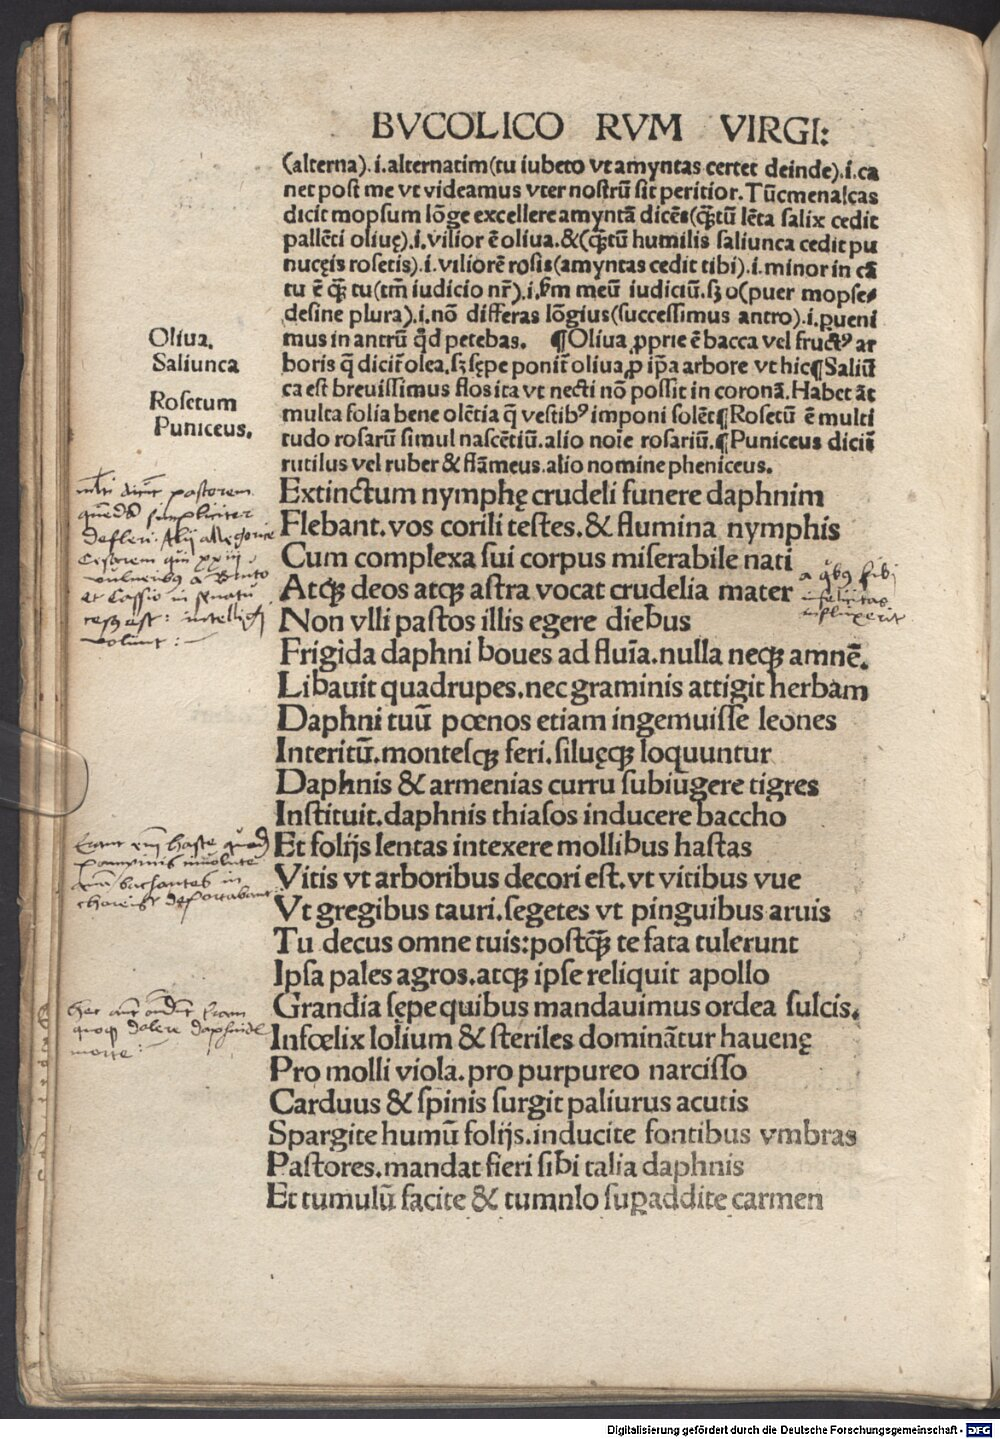 BVCOLICO RVM VIRGI:
(alterna).i.alternatim(tu iubeto vt amyntas certet deinde).i.ca
net post me vt videamus vter nostrũ sit peritior.Tũcmenalcas
dicit mopsum lõge excellere amyntã dicẽs(q̃tũ lẽta salix cedit
pallẽti oliuę).i.vilior ẽ oliua.&(q̃tũ humilis saliunca cedit pu
nucęis rosetis).i.viliorẽ rosis(amyntas cedit tibi).i.minor in cã
tu ẽ q̃ꝫ tu(tm̃ iudicio nr̃).i.ẜm meũ iudiciũ.sꝫ o(puer mopse
desine plura).i.nõ differas lõgius(successimus antro).i.ꝑueni
mus in antrũ qd̃ petebas. ¶Oliua ꝓprie ẽ bacca vel fructꝰ ar
boris q̃ dicit̃ olea.sꝫ sępe ponit̃ oliua ꝓ ip̃a arbore vt hic¶Saliũ
ca est breuissimus flos ita vt necti nõ possit in coronã.Habet ãt
multa folia bene olẽtia q̃ vestibꝰ imponi solẽt¶Rosetũ ẽ multi
tudo rosarũ simul nascẽtiũ.alio noie rosariũ.¶Puniceus dicit̃
rutilus vel ruber & flãmeus.alio nomine pheniceus.
Oliua.
Saliunca
Rosetum
Puniceus.
Extinctum nymphę crudeli funere daphnim
Flebant.vos corili testes.& flumina nymphis
Cum complexa sui corpus miserabile nati
Atqꝫ deos atqꝫ astra vocat crudelia mater
Non vlli pastos illis egere diebus
Frigida daphni boues ad fluĩa.nulla neqꝫ amnẽ.
Libauit quadrupes.nec graminis attigit herbam
Daphni tuũ pœnos etiam ingemuisse leones
Interitũ.montesqꝫ feri.siluęqꝫ loquuntur
Daphnis & armenias curru subiugere tigres
Instituit.daphnis thiasos inducere baccho
Et folijs lentas intexere mollibus hastas
Vitis vt arboribus decori est.vt vitibus vue
Vt gregibus tauri.segetes vt pinguibus aruis
Tu decus omne tuis:postq̃ꝫ te fata tulerunt
Ipsa pales agros.atqꝫ ipse reliquit apollo
Grandia sępe quibus mandauimus ordea sulcis.
Infœlix lolium & steriles dominãtur hauenę
Pro molli viola.pro purpureo narcisso
Carduus & spinis surgit paliurus acutis
Spargite humũ folijs.inducite fontibus vmbras
Pastores.mandat fieri sibi talia daphnis
Et tumulũ facite & tumnlo suꝑaddite carmen
pastorem
simpliciter
defleri. Alij allegorice
Cesarem qui xxiij
vulneribꝰ a Bruto
et Cassio in senatu
volunt :
infelicitas
bachantes in
quoqꝫ dolere daphnidis
morte :
Digitalisierung gefördert durch die Deutsche Forschungsgemeinschaft - DFG